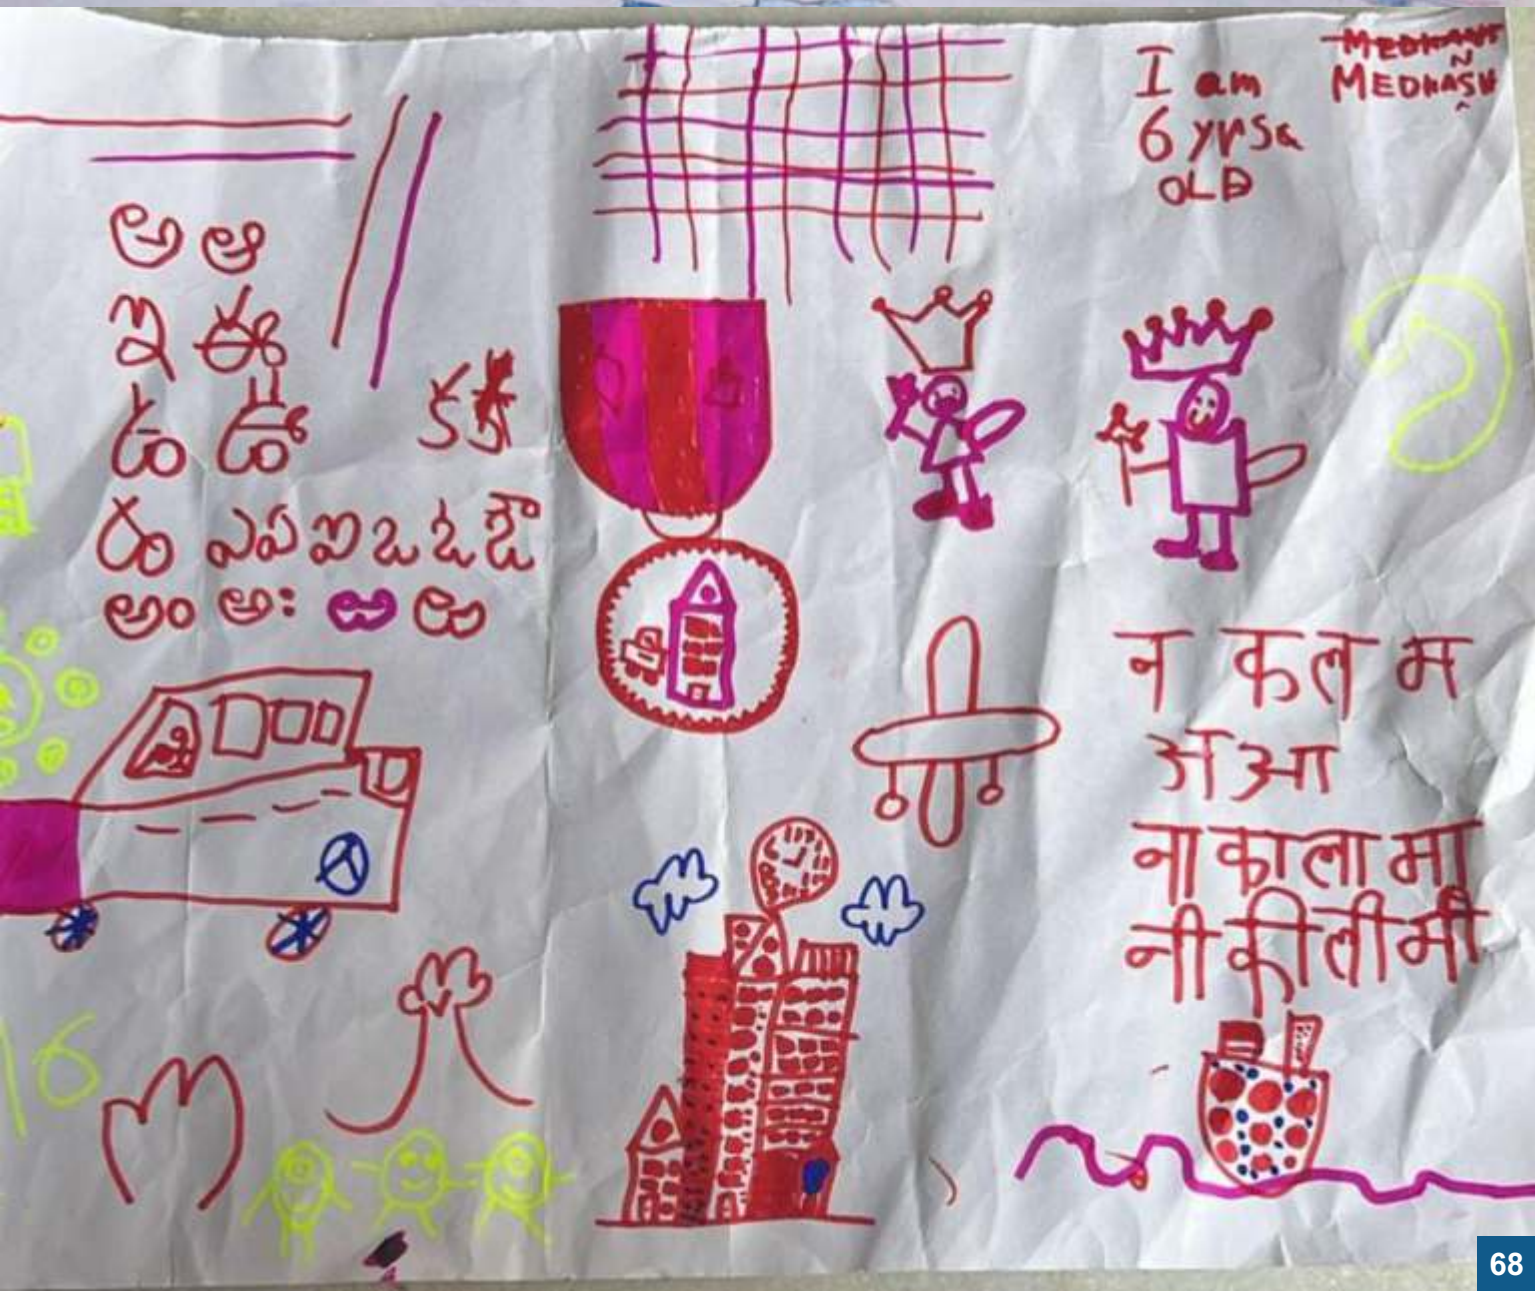 I am
6 yrsa
OLD
MEDHANSH
అ ఆ
ఇ ఈ
ఉ ఊ
ఋ ఎ ఏ ఐ ఒ ఓ ఔ
అం అః
క
न क ल म
अ आ
ना का ला मा
नी की ली मी
16
68